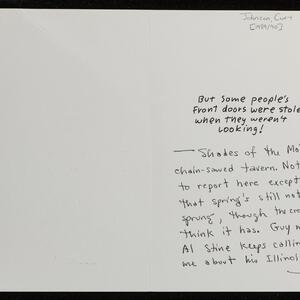 Johnson, Curt
[1989/90]
But some people's
front doors were stole
when they weren't
looking!
— Shades of the
chain-sawed tavern. Not
to report here except
that spring's still not
sprung, though the
think it has. Guy
Al Stine keeps callin
me about his Illinoi